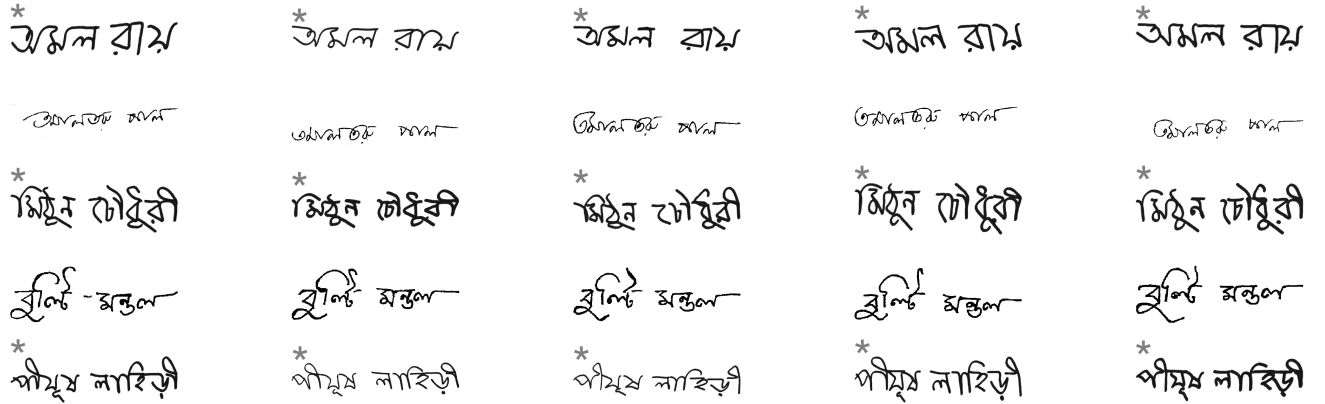 * অমল রায় * অমল রায় * অমল রায় * অমল রায় * অমল রায়
তমালতরু পাল তমালতরু পাল তমালতরু পাল তমালতরু পাল তমালতরু পাল
* মিঠুন চৌধুরী * মিঠুন চৌধুরী * মিঠুন চৌধুরী * মিঠুন চৌধুরী * মিঠুন চৌধুরী
বুল্টি - মন্ডল বুল্টি মন্ডল বুল্টি মন্ডল বুল্টি মন্ডল বুল্টি মন্ডল
* পীযূষ লাহিড়ী * পীযূষ লাহিড়ী * পীযূষ লাহিড়ী * পীযূষ লাহিড়ী * পীযূষ লাহিড়ী